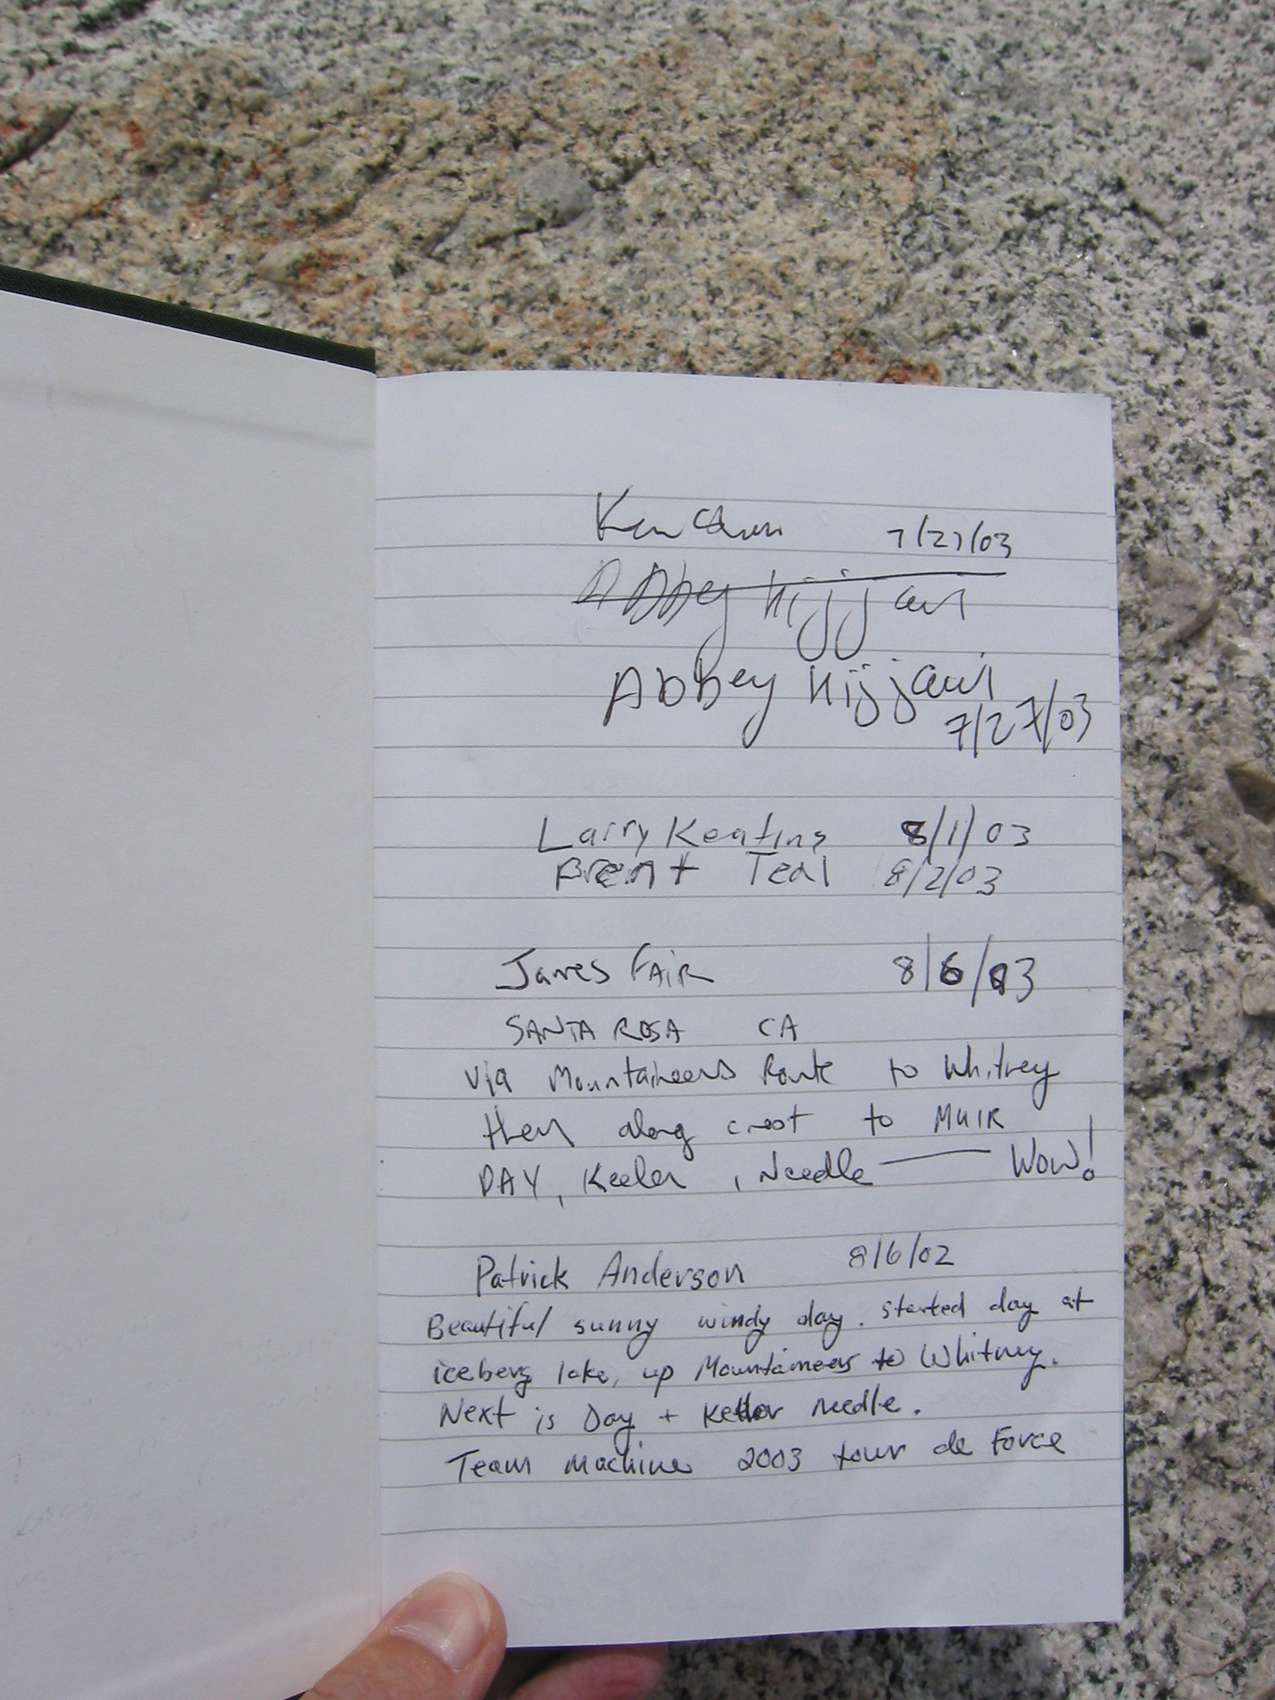 Ken 7/27/03
Abbey Hijjawi
Abbey Hijjawi
7/27/03
Larry Keating 8/1/03
Brent Teal 8/2/03
James FAIR 8/6/03
SANTA ROSA CA
via Mountaineers Route to Whitney
then along crest to MUIR
DAY, Keeler, Needle — WOW!
Patrick Anderson 8/6/02
Beautiful sunny windy day. started day at
iceberg lake, up Mountaineers to Whitney.
Next is Day + Keeler needle.
Team Machine 2003 tour de Force